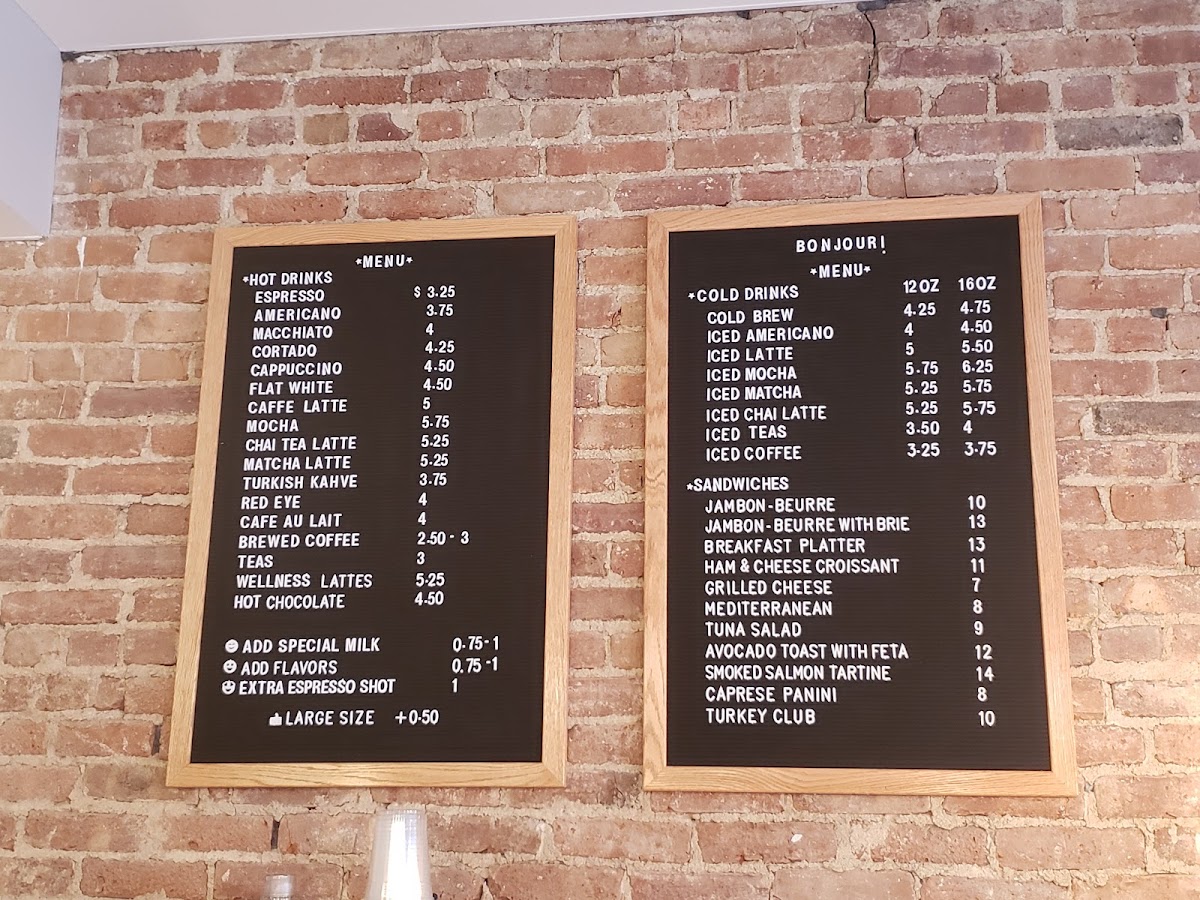 *MENU*
*HOT DRINKS
ESPRESSO $ 3.25
AMERICANO 3.75
MACCHIATO 4
CORTADO 4.25
CAPPUCCINO 4.50
FLAT WHITE 4.50
CAFFE LATTE 5
MOCHA 5.75
CHAI TEA LATTE 5.25
MATCHA LATTE 5.25
TURKISH KAHVE 3.75
RED EYE 4
CAFE AU LAIT 4
BREWED COFFEE 2.50 - 3
TEAS 3
WELLNESS LATTES 5.25
HOT CHOCOLATE 4.50
ADD SPECIAL MILK 0.75-1
ADD FLAVORS 0.75-1
EXTRA ESPRESSO SHOT 1
LARGE SIZE +0.50
BONJOUR!
*MENU*
*COLD DRINKS 12OZ 16OZ
COLD BREW 4.25 4.75
ICED AMERICANO 4 4.50
ICED LATTE 5 5.50
ICED MOCHA 5.75 6.25
ICED MATCHA 5.25 5.75
ICED CHAI LATTE 5.25 5.75
ICED TEAS 3.50 4
ICED COFFEE 3.25 3.75
*SANDWICHES
JAMBON-BEURRE 10
JAMBON-BEURRE WITH BRIE 13
BREAKFAST PLATTER 13
HAM & CHEESE CROISSANT 11
GRILLED CHEESE 7
MEDITERRANEAN 8
TUNA SALAD 9
AVOCADO TOAST WITH FETA 12
SMOKED SALMON TARTINE 14
CAPRESE PANINI 8
TURKEY CLUB 10